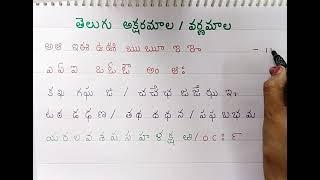 తెలుగు అక్షరమాల / వర్ణమాల
అఆ ఇఈ ఉఊ ఋౠ
ఎ ఏ ఐ ఒ ఓ ఔ అం అః
కఖ గఘ ఙ / చఛ జఝ ఞ
టఠ డఢ ణ / తథ దధ న / పఫ బభ మ
య ర ల వ శ ష స హ ళ క్ష ఱ /